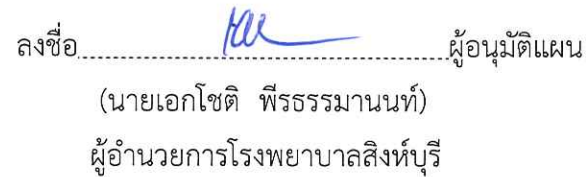 ลงชื่อ........................................................ผู้อนุมัติแผน
(นายเอกโชติ พีรธรรมานนท์)
ผู้อำนวยการโรงพยาบาลสิงห์บุรี